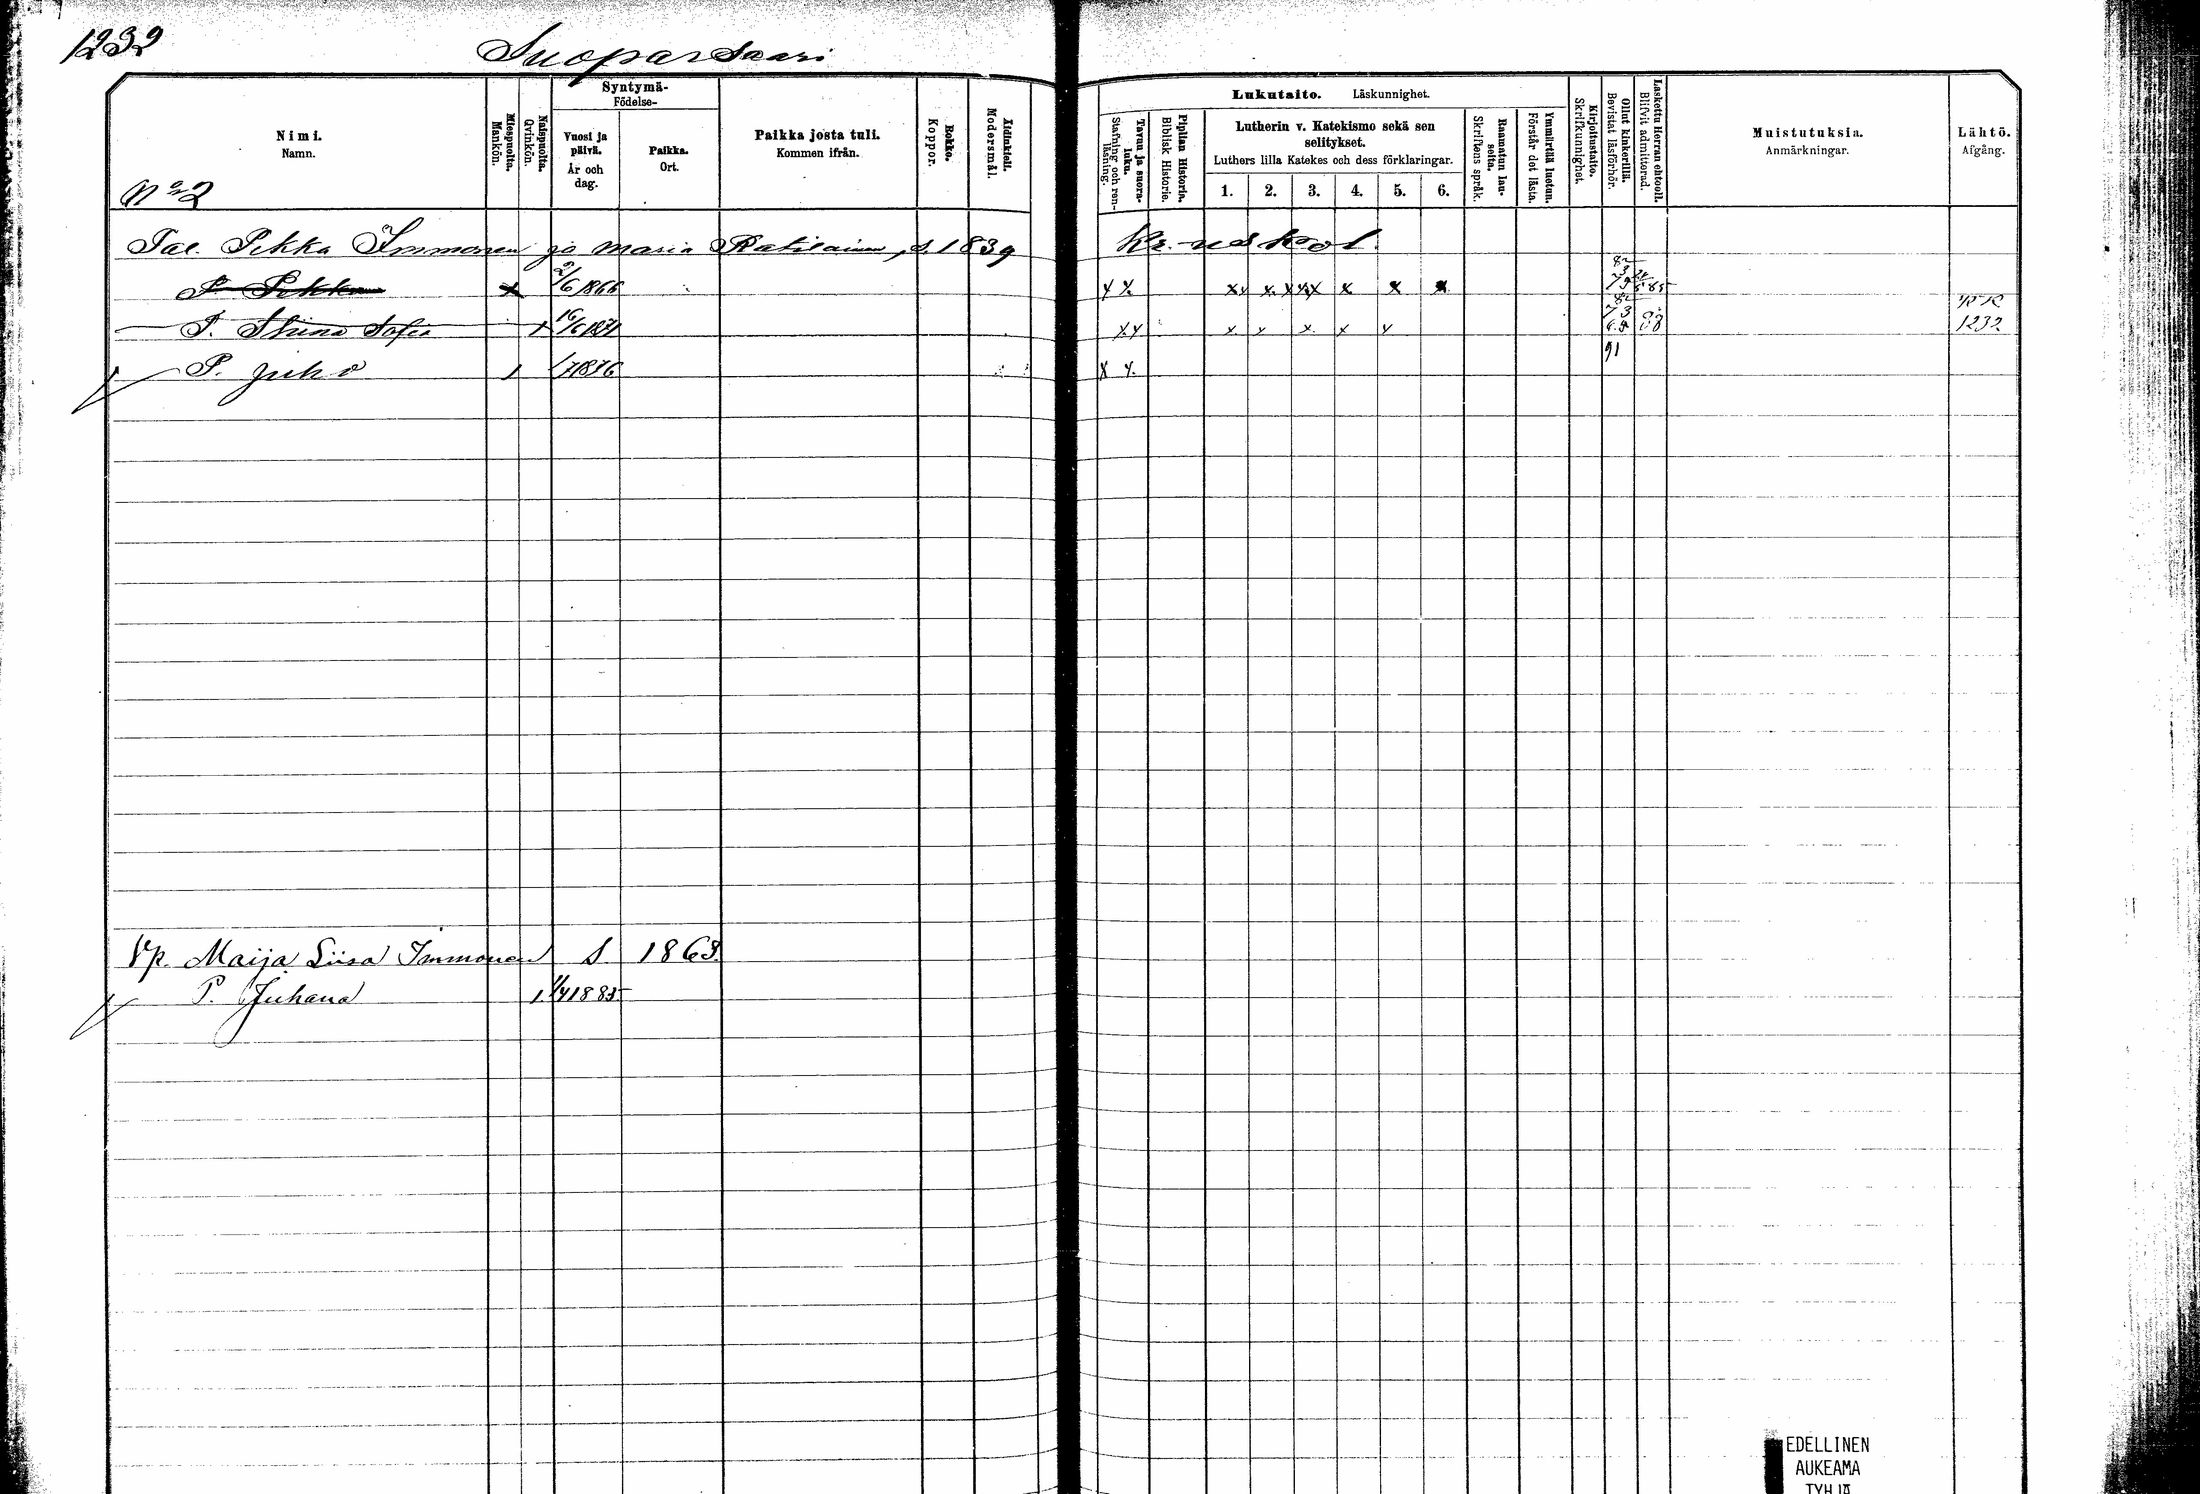 1232
Suoparsaari
Nimi. Namn.
Miespuolta. Mankön.
Naispuolta. Qvinkön.
Syntymä- Födelse-
Vuosi ja päivä. År och dag.
Paikka. Ort.
Paikka josta tuli. Kommen ifrån.
Rokko. Koppor.
Äidinkieli. Modersmål.
Lukutaito. Läskunnighet.
Tavuu ja suora-luku. Stafning och ren-läsning.
Piplian Historia. Biblisk Historie.
Lutherin v. Katekismo sekä sen selitykset.
Luthers lilla Katekes och dess förklaringar.
1. 2. 3. 4. 5. 6.
Raamatun lau-seita. Skriftens språk.
Ymmärtää luetun. Förstår det lästa.
Kirjoitustaito. Skrifkunnighet.
Ollut kinkerillä. Bevistat läsförhör.
Laskettu Herran ehtooll. Blifvit admitterad.
Muistutuksia. Anmärkningar.
Lähtö. Afgång.
No 2
Tal. Pekka Immonen ja Maria Ratilainen, S. 1839 Kr. uskol.
P. Pekka x 2/6 1866 x x x x x x x x x x x
T. Stiina Sofia 1 16/6 1871 x x x x x x x 88 1232
P. Juho 1 1/7 1876 x x 91
Vp. Maija Liisa Immonen S 1863.
P. Juhana 1 1/4 1885
EDELLINEN
AUKEAMA
TYHJÄ